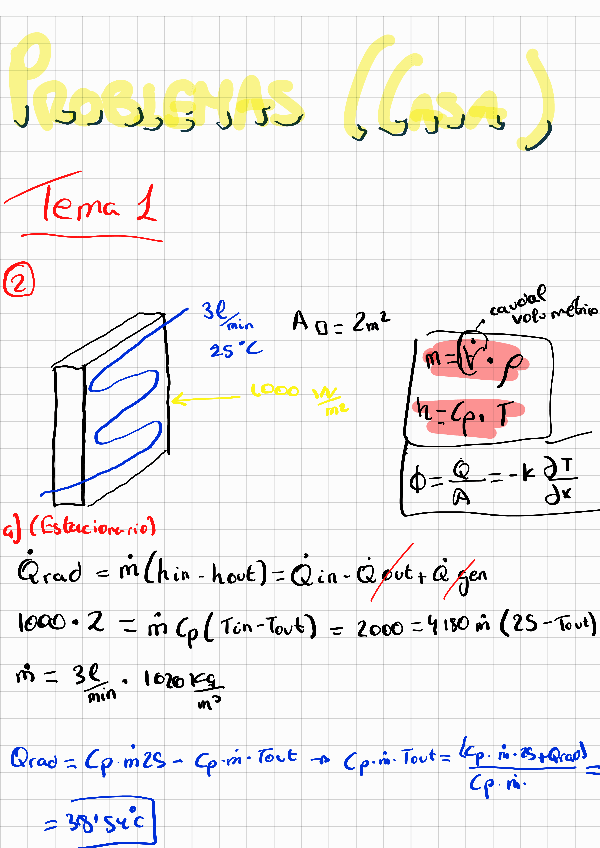 PROBLEMAS (CASA)
Tema 1
②
3l/min
25°C
A▯ = 2m²
1000 W/m²
caudal
volumétrico
ṁ = V̇ · ρ
h = Cp · T
ϕ = Q̇/A = -k ∂T/∂x
a) (Estacionario)
Q̇rad = ṁ(hin - hout) = Q̇in - Q̇out + Q̇gen
1000 · 2 = ṁ Cp (Tin - Tout) = 2000 = 4180 ṁ (25 - Tout)
ṁ = 3l/min · 1020 Kg/m³
Qrad = Cp · ṁ 25 - Cp · ṁ · Tout → Cp · ṁ · Tout = (Cp · ṁ · 25 + Qrad)/(Cp · ṁ ·) =
= 38'54°C